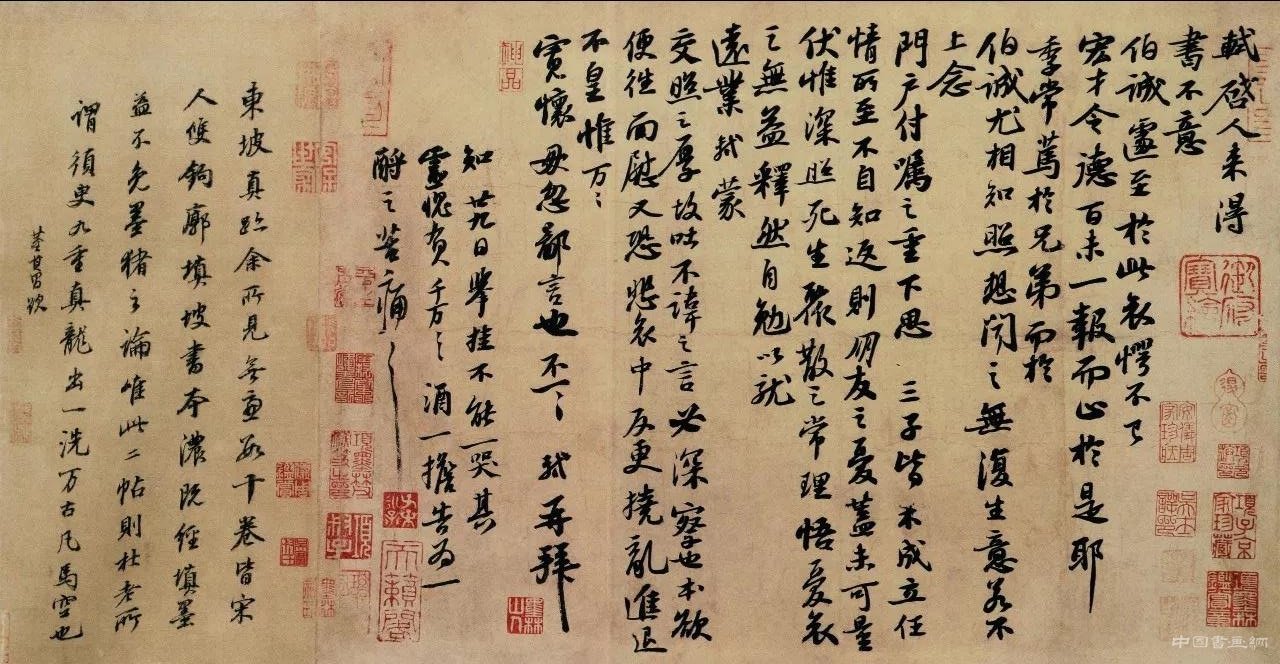 軾啓人来得
書不意
伯誠遽至於此哀愕不已
宏才令德百未一報而止於是耶
季常篤於兄弟而於
伯誠尤相知照想聞之無復生意若不
上念
門户付囑之重下思三子皆未成立任
情所至不自知返則朋友之憂盖未可量
伏惟深照死生聚散之常理悟憂哀
之無益釋然自勉以就
遠業軾蒙
交照之厚故吐不諱之言必深察也本欲
便往面慰又恐悲哀中反更撓亂進退
不皇惟万万
寛懷毋忽鄙言也不一一軾再拜
知廿九日舉挂不能一哭其
靈愧負千万千万酒一擔告為一
酹之苦痛苦痛
東坡真跡余所見無慮數十卷皆宋
人雙鈎廓填坡書本濃既經填墨
益不免墨猪之論唯此二帖則杜老所
謂須臾九重真龍出一洗万古凡馬空也
董其昌題
御府寶繪
項子京家珍藏
項墨林鑑賞章
中国書画網